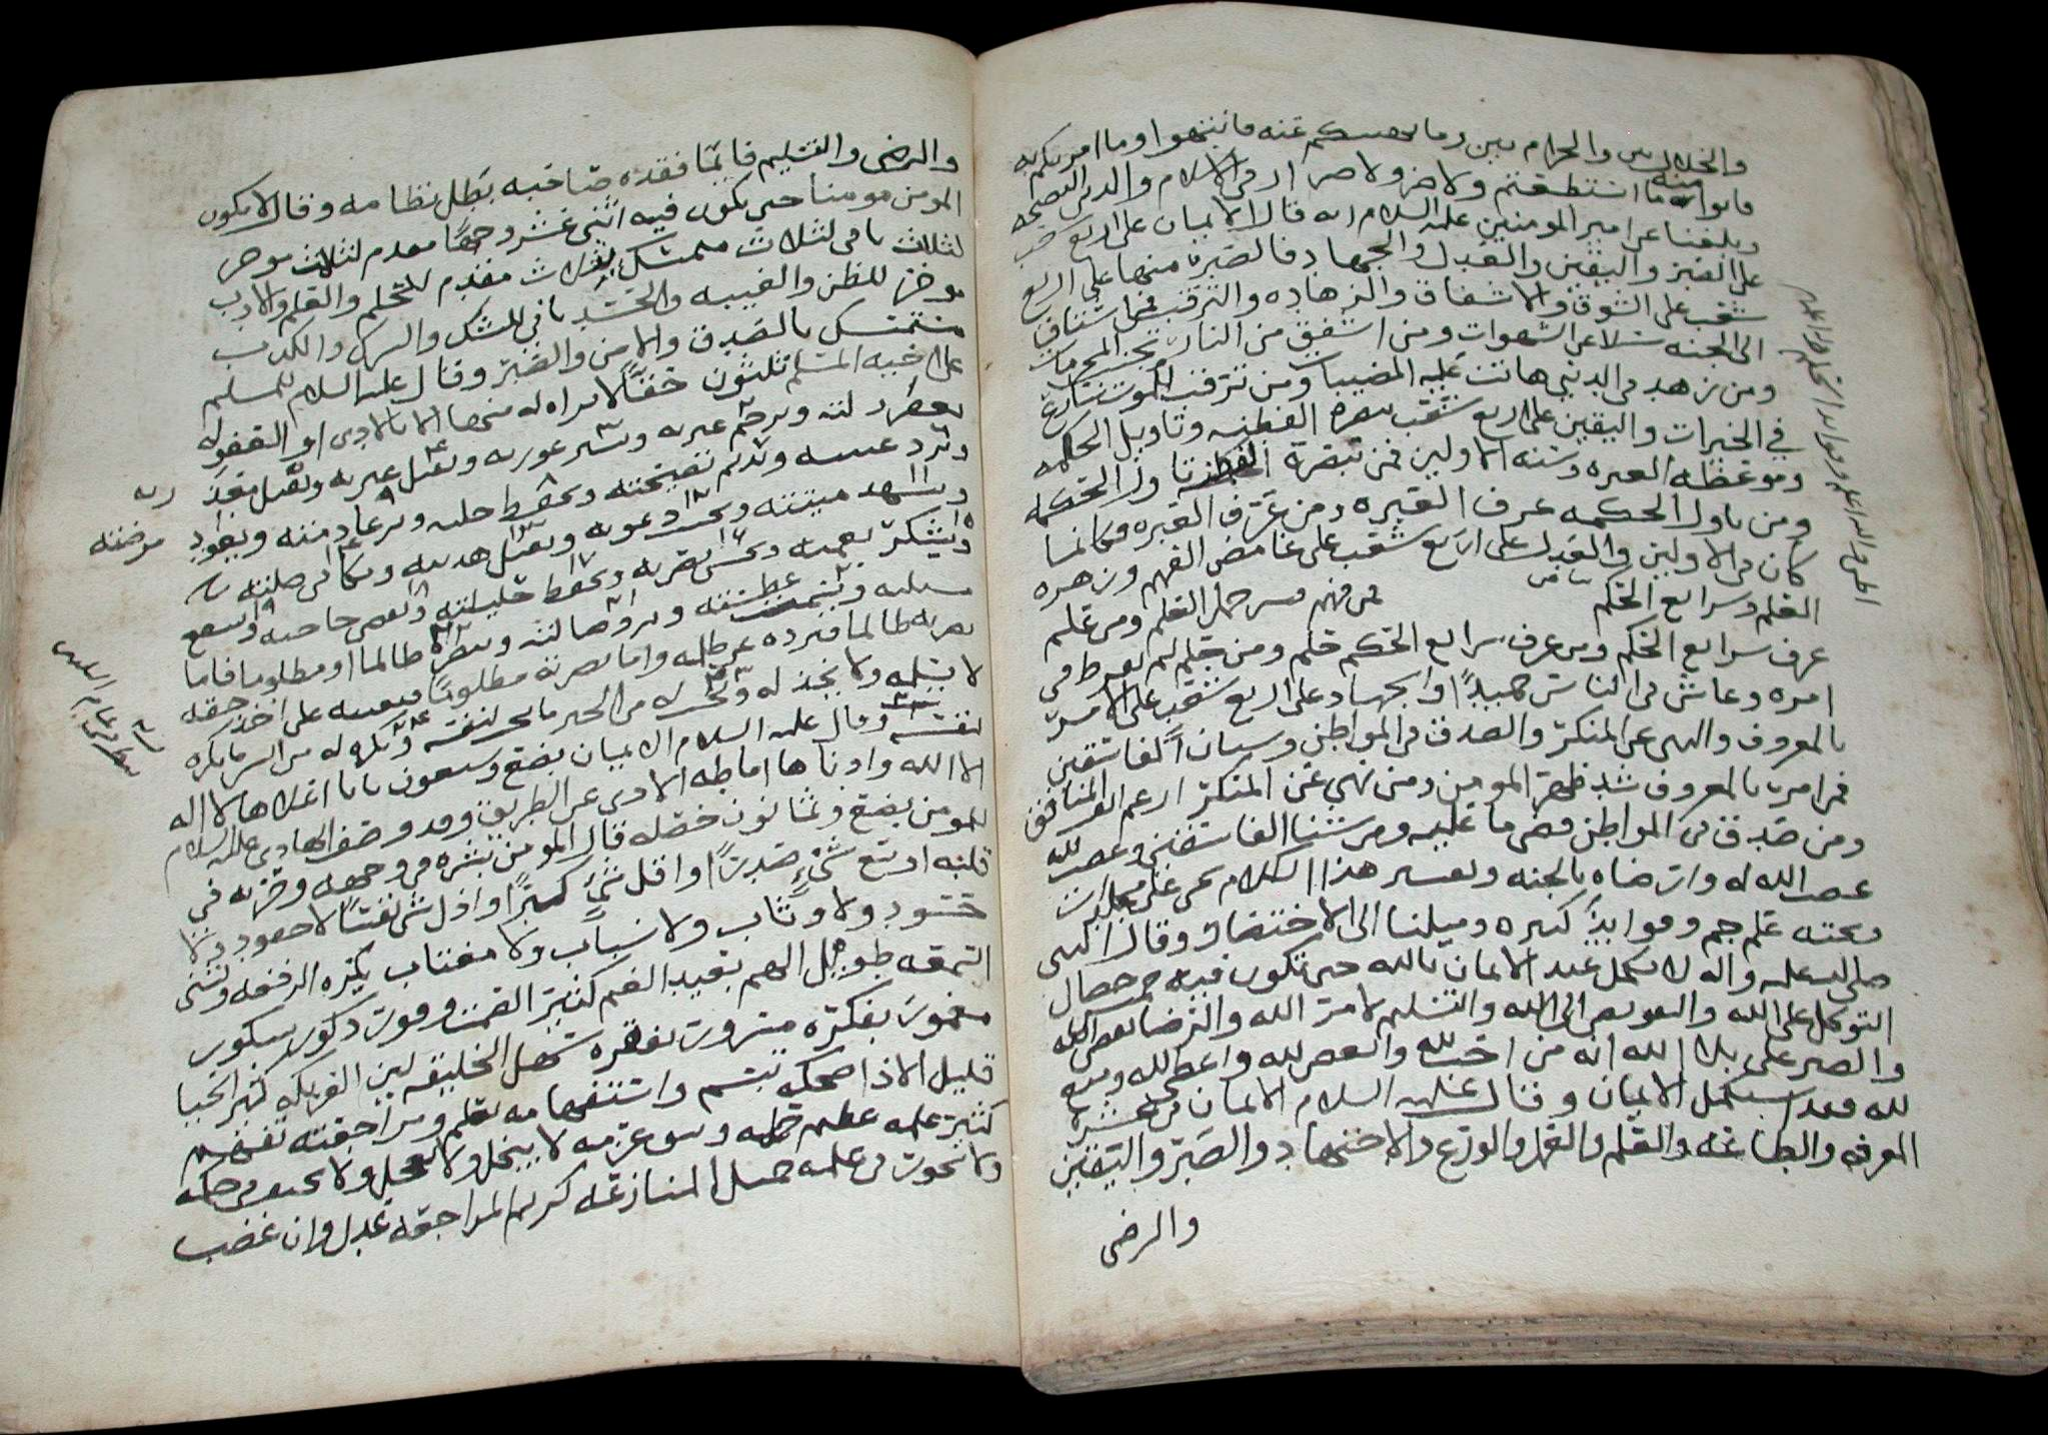 والحلال بين والحرام بين وما نهيتكم عنه فانتهوا وما امرتكم به
فاتوا منه ما استطعتم ولا ضرر ولا ضرار في الاسلام والدين النصيحه
وبلغنا عن امير المومنين عليه السلام انه قال الايمان على اربع شعب
على الصبر واليقين والعدل والجهاد فالصبر منها على اربع
شعب على الشوق والاشفاق والزهاده والترقب فمن اشتاق
الى الجنه سلا عن الشهوات ومن اشفق من النار تجنب المحرمات
ومن زهد في الدنيا هانت عليه المصيبات ومن ترقب الموت سارع
في الخيرات واليقين على اربع شعب تبصره الفطنه وتاويل الحكمه
وموعظه العبره وسنه الاولين فمن تبصر الفطنه تاول الحكمه
ومن تاول الحكمه عرف العبره ومن عرف العبره فكانما
كان في الاولين والعدل على اربع شعب على غامض الفهم وزهره
العلم وشرايع الحكم فمن فهم فسر جمل العلم ومن علم
عرف شرايع الحكم ومن عرف شرايع الحكم حلم ومن حلم لم يفرط في
امره وعاش في الناس حميدًا والجهاد على اربع شعب على الامر
بالمعروف والنهي عن المنكر والصدق في المواطن وشنان الفاسقين
فمن امر بالمعروف شد ظهر المومن ومن نهى عن المنكر ارغم انف المنافق
ومن صدق في المواطن قضى ما عليه ومن شنا الفاسقين وغضب لله
غضب الله له وارضاه بالجنه وتفسير هذا الكلام
تحته علم جم وفوايد كثيره وميلنا الى الاختصار وقال النبي
صلى الله عليه واله لا يكمل عبد الايمان بالله حتى تكون فيه خمس خصال
التوكل على الله والتفويض الى الله والتسليم لامر الله والرضا بقضاء الله
والصبر على بلاء الله انه من احب لله وابغض لله واعطى لله ومنع
لله فقد استكمل الايمان وقال عليه السلام الايمان في عشره
المعرفه والطاعه والعلم والعمل والورع والاجتهاد والصبر واليقين
والرضى
والرضى والتسليم فايها فقده صاحبه بطل نظامه وقال لا يكون
المومن مومنا حتى يكون فيه اثنى عشر وجها مقدم لثلاث موخر
لثلاث نافي لثلاث متمسك بثلاث مقدم للحلم والعلم والادب
موخر للظن والغيبه والحسد نافي للشك والشرك والكذب
متمسك بالصدق والامن والصبر وقال عليه السلام للمسلم
على اخيه المسلم ثلثون حقًا لا براه له منها الا بالادى او العفو له
يغفر زلته ويرحم عبرته ويستر عورته ويقيل عثرته ويقبل معذرته
ويرد غيبته ويديم نصيحته ويحفظ خلته ويرعا ذمته ويعود مرضته
ويشهد ميتته ويجيب دعوته ويقبل هديته ويكافي صلته
ويشكر نعمته ويحسن نصرته ويحفظ حليلته ويقضي حاجته ويشفع
مسئلته ويشمت عطسته ويرد ضالته وينصره ظالما او مظلوما فاما
نصرته ظالما فيرده عن ظلمه واما نصرته مظلومًا فيعينه على اخذ حقه
لا يسلمه ولا يخذله ويحب له من الخير ما يحب لنفسه ويكره له من الشر ما يكره
لنفسه وقال عليه السلام الايمان بضع وسبعون بابا اعلاها لا اله
الا الله وادناها اماطه الاذى عن الطريق وقد وصف الهادي عليه السلام
المومن بضع وثمانون خصله قال المومن بشره في وجهه وحزنه في
قلبه اوسع شيء صدرًا واقل شيء كبرًا واذل شيء نفسًا لا حقود ولا
حسود ولا وثاب ولا سباب ولا مغتاب يكره الرفعه ويشنى
السمعه طويل الهم بعيد الغم كثير الصمت وقور ذكور شكور
مغمور بفكره مسرور بفقره سهل الخليقه لين العريكه كثير الحيا
قليل الاذا ضحكه تبسم واستفهامه تعلم ومراجعته تفهم
كثير علمه عظيم حلمه وثيق عزمه لا يبخل ولا يعجل ولا يحيف في حكمه
ولا يجور في علمه جميل المنازعه كريم المراجعه عدل وان غضب